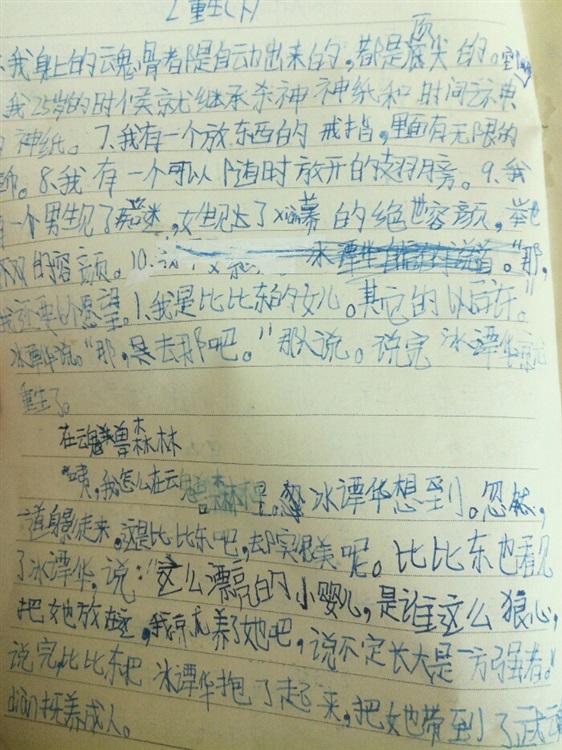 2 重生(下)
我身上的魂骨都是自动出来的,都是顶尖的。
我25岁的时候就继承杀神神纸和时间
神纸。7.我有一个放东西的戒指,里面有无限的
。8.我有一个可以随时放开的翅膀。9.我
一个男生见了着迷,女生见了xian慕的绝世容颜,举世
的容颜。10.
我还要以愿望。1.我是比比东的女儿。其它的以后在。"
冰谭华说。"那,是去那吧。"那人说。说完冰谭华
重生了。
在魂兽森林
"咦,我怎么在 冰谭华想到。忽然,
一道身影走来。这是比比东吧,却实很美呢。比比东也看见
了冰谭华,说:"这么漂亮的小婴儿,是谁这么狠心,
把她放在这,我就养了她吧,说不定长大是一方强者。"
说完,比比东把冰谭华抱了起来,把她带到了武魂
dian抚养成人。